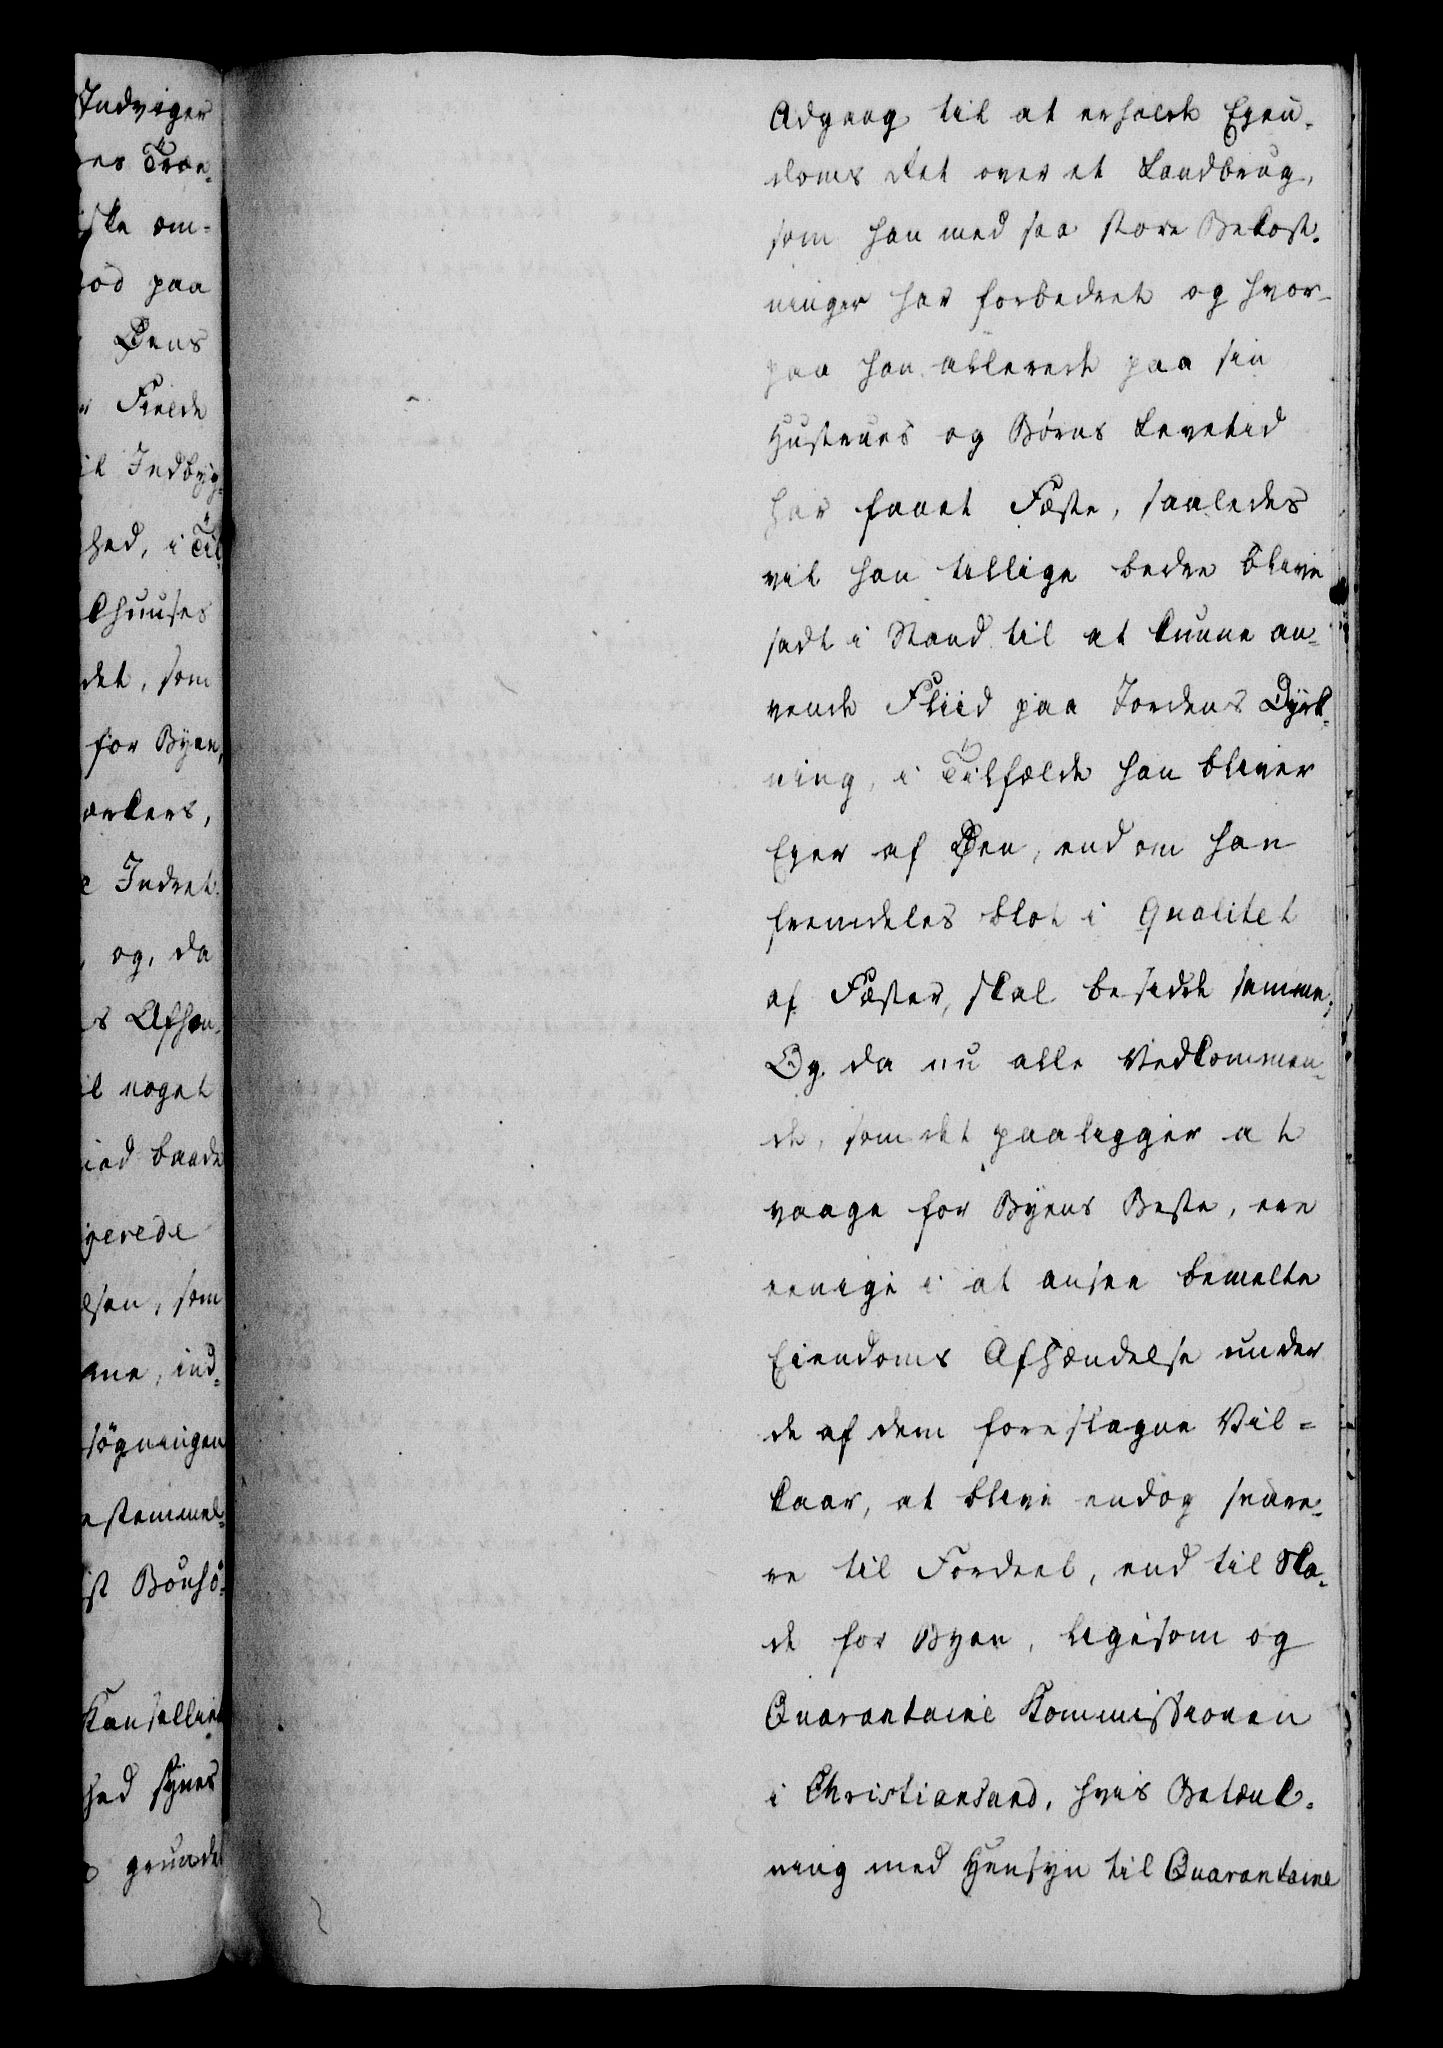 Indviger
nes Træn-
iske om-
od paa
Øens
Fielde
il Indbyg-
hed, i Til
khuuses
det, som
for Byen,
ærkers,
Indret
og, da
s Afhæn-
il noget
ied baade
gerede
lsen, som
ene, ind-
søgningen
estemmel-
ist Bønhø-
Kanselliet
hed synes
grunde
Adgang til at erholde Eyen-
doms Ret over et Landbrug,
som han med saa store Bekost-
ninger har forbedret og hvor-
paa han allerede paa sin
Hustrues og Børns Levetid
har faaet Fæste, saaledes
vil han tillige bedre blive
sadt i Stand til at kunne an-
vende Fliid paa Jordens Dyrk-
ning, i Tilfælde han bliver
Eyer af Øen, end om han
fremdeles blot i Qualitet
af Fæster, skal besidde samme;
Og da nu alle Vedkommen-
de, som det paaligger at
vaage for Byens Beste, ere
eenige i at ansee bemelte
Eiendoms Afhændelse under
de af dem foreslagne Vil-
kaar, at blive endog snare-
re til Fordeel, end til Ska-
de for Byen, ligesom og
Quarantaine Kommissionen
i Christiansand, hvis Betænk-
ning med Hensyn til Quarantaine